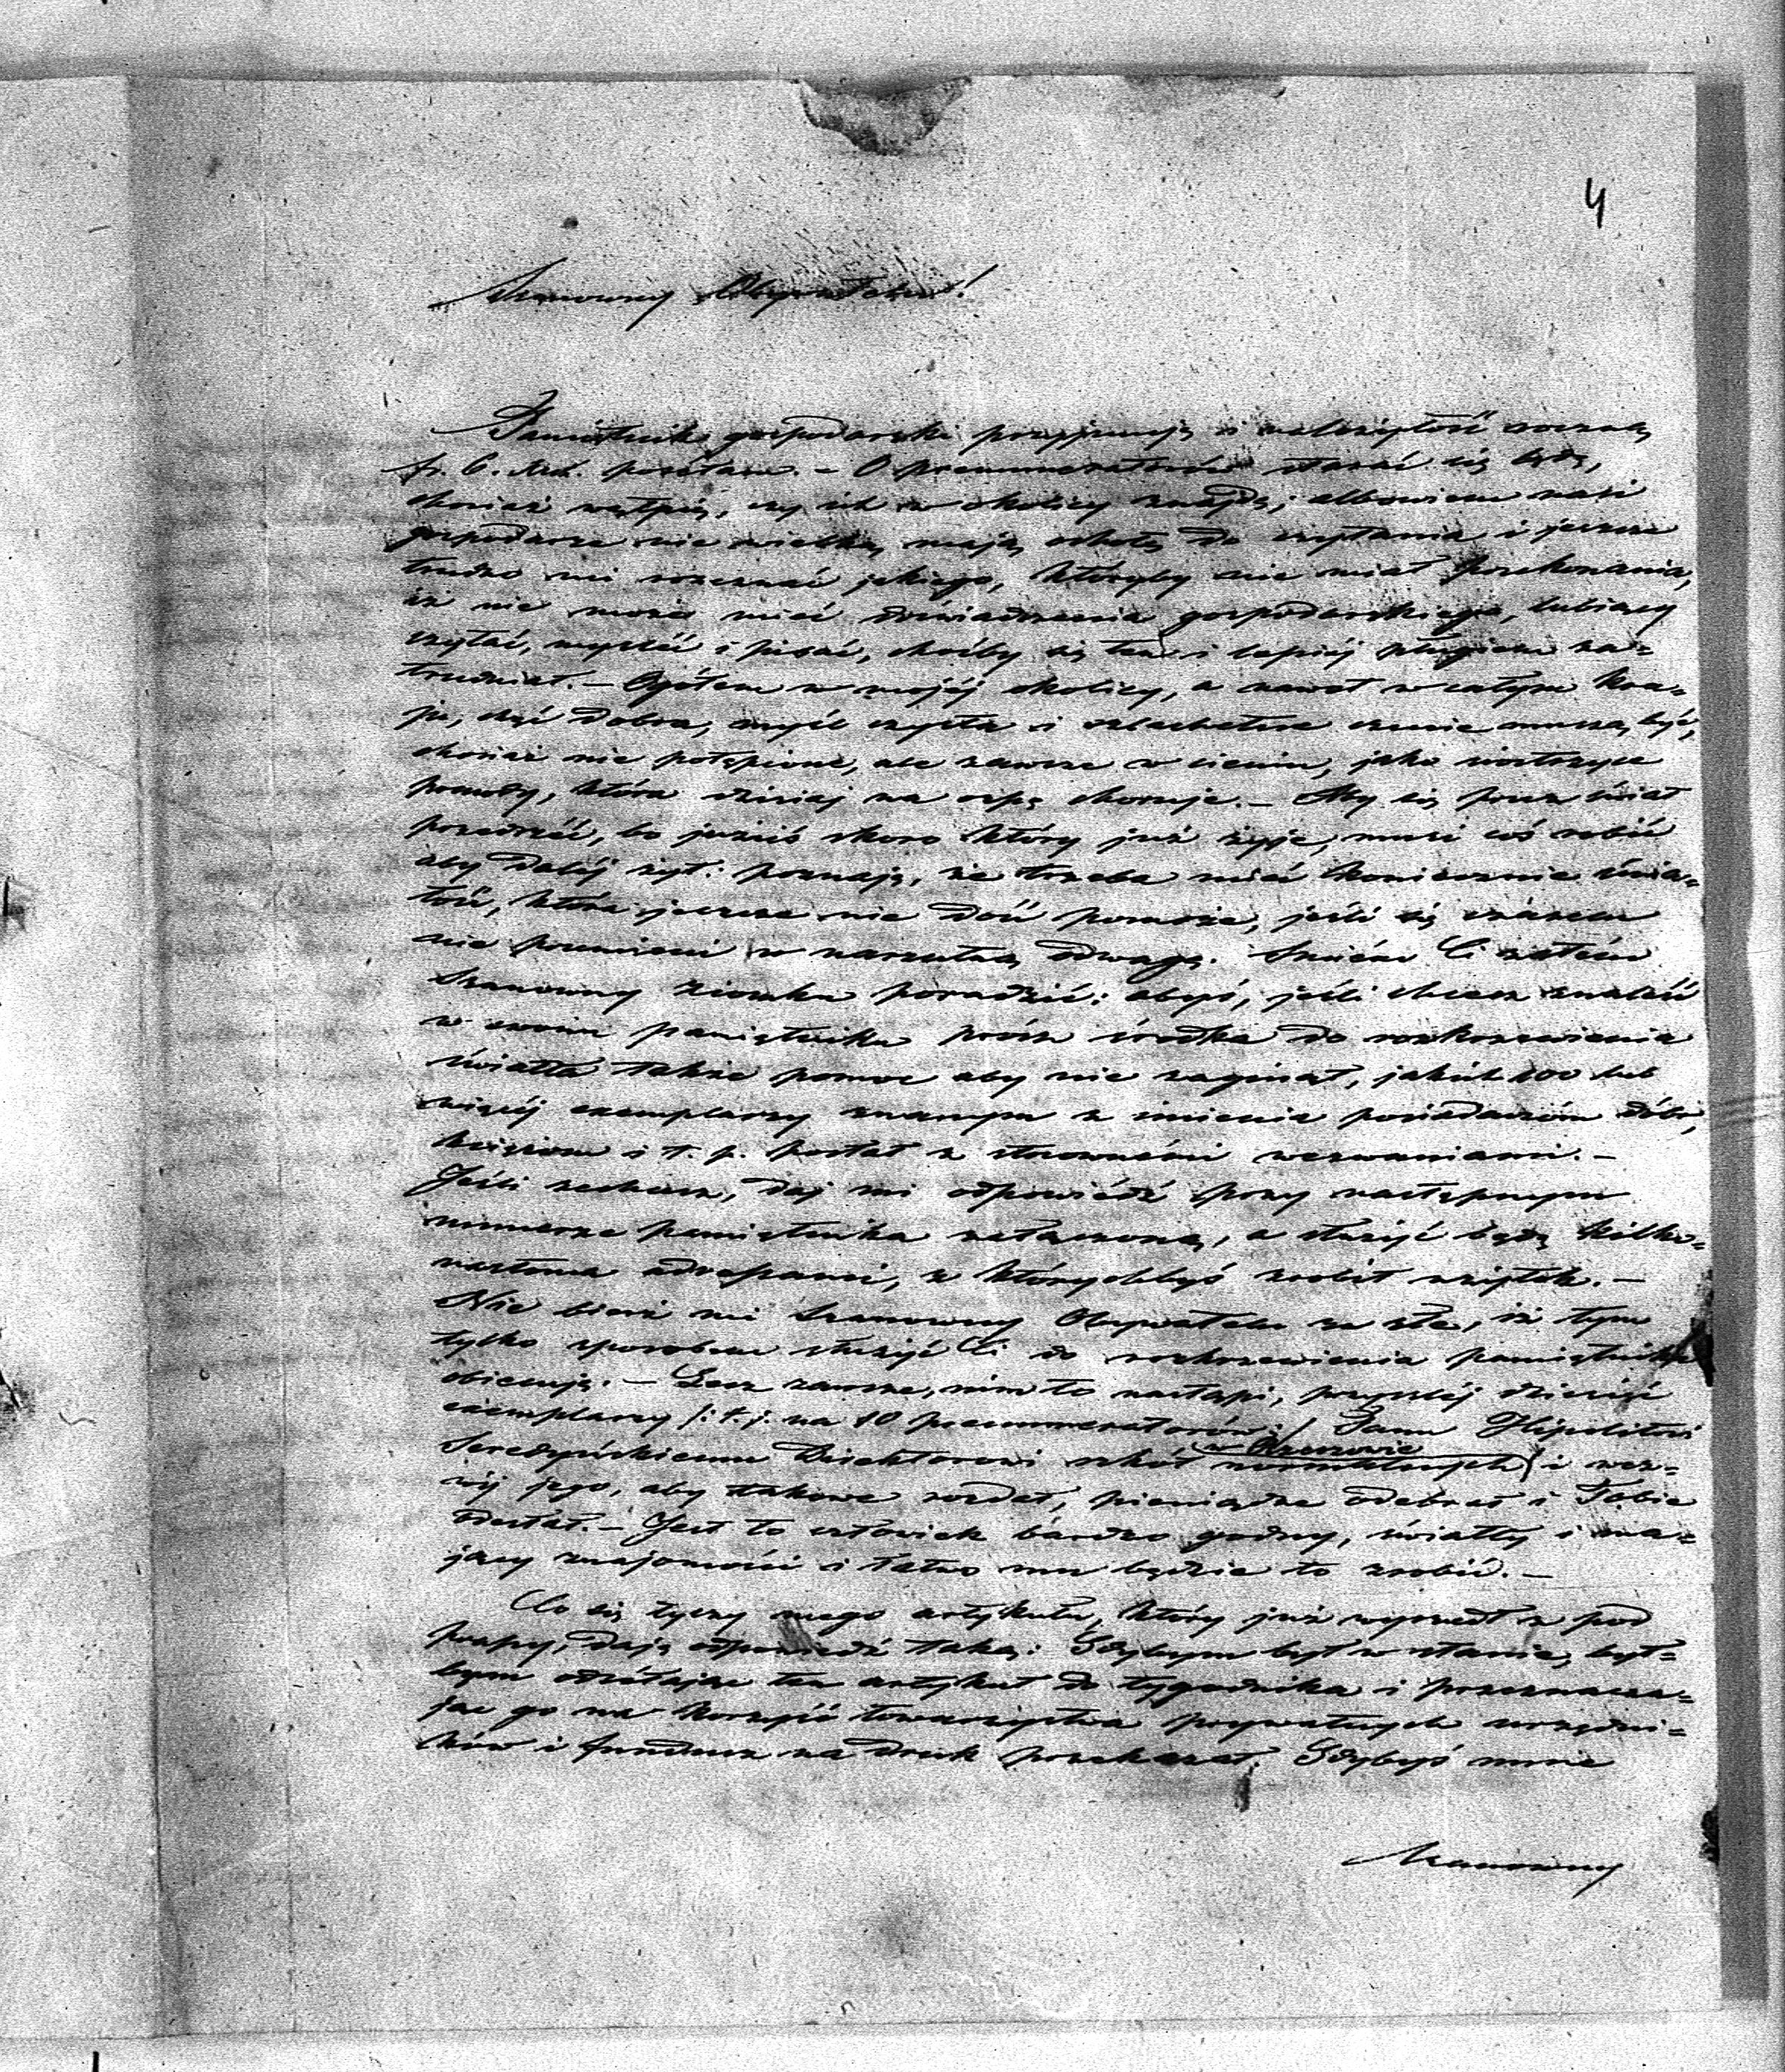 4
Szanowny Obywatelu!
Pamiętnik gospodarski przyjmuję i należytość roczną
fr. 6. posełam. – O prenumeratorów starać się będę,
chociaż wątpię, czy ich w okolicy znajdę; albowiem nasi
gospodarze nie wielką mają ochotę do czytania i jeszcze
trudno mi poznać jakiego, któryby nie miał przekonania,
iż nie może mieć doświadczenia gospodarskiego, lubiący
czytać, myśleć i pisać, choćby się ten i lepiéj pługiem za=
trudniał. – Ogółem w mojéj okolicy, a nawet w całym kra=
ju, chęć dobra, myśl czysta i szlachetne czucie muszą być,
chociaż nie potępione, ale zawsze w cieniu, jako siostrzyce
prawdy, która dzisiaj na ospę choruje. – Aby się przez świat
przedrzéć, bo jużciż skoro który już żyje, musi coś robić
aby daléj żył: poznają, że trzeba mieć koniecznie świa=
tło, które jeszcze nie dość pomoże, jeśli się czasem
nie przemieni w zarzutną odwagę. Śmiem Ci zatém
Szanowny Ziomku poradzić: abyś, jeśli chcesz znaleść
w swoim pamiętniku prócz środka do rozkrzewienia
światła także pomoc aby nie zaginął, jakich 100 lub
więcéj exemplarzy znanym z imienia posiadaczóm dóbr,
księżom i t. p. posłał z stosownémi wezwaniami. –
Jeśli zechcesz, daj mi odpowiédź przy następnym
numerze pamiętnika załączoną, a służyć będę kilku=
nastoma adresami, z którychbyś zrobił użytek. –
Nie bierz mi Szanowny Obywatelu za złe, iż tym
tylko sposobem służyć Ci do rozkrzewienia pamiętnika
obiecuję. – Lecz zawsze, nim to nastąpi, przyszléj dziesięć
exemplarzy /: t. j. na 10 prenumeratorów :/ Panu Hipolitowi
Seredyńskiemu Direktorowi szkół w Rzeszowie i wez=
wij jego, aby takowe rozdał, pieniądze odebrał i Tobie
odesłał. – Jest to człowiek bardzo godny, światły i ma=
jący znajomości i łatwo mu będzie to zrobić. –
Co się tyczy mego artykułu, który już wyszedł z pod
prasy, daję odpowiedź taką: Gdybym był w stanie, był=
bym odsełając ten artykuł do tygodnika i przeznacza=
jąc go na korzyść towarzystwa prywatnych urzędni=
ków i fundusz na druk przekazał. Gdybyś mnie
Szanowny